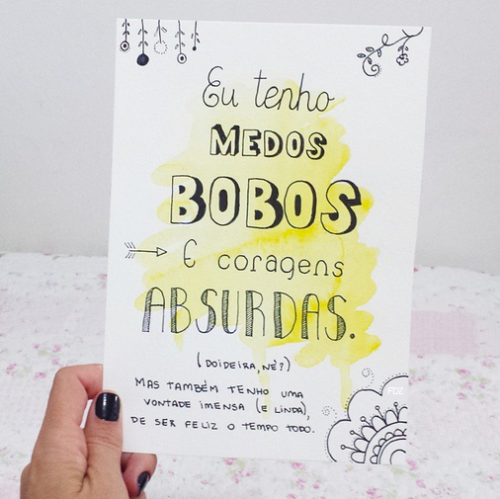 Eu tenho
MEDOS
BOBOS
E coragens
ABSURDAS.
(DOIDEIRA, NÉ?)
MAS TAMBÉM TENHO UMA
VONTADE IMENSA (E LINDA),
DE SER FELIZ O TEMPO TODO.